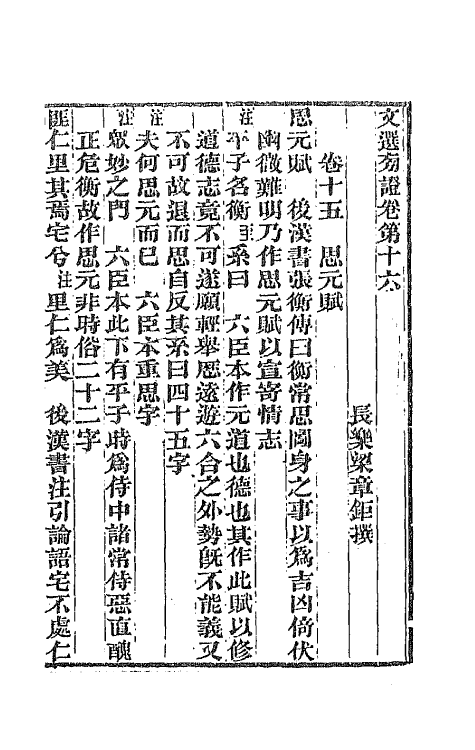 文選旁證卷第十六
長樂梁章鉅撰
卷十五　思元賦
思元賦　後漢書張衡傳曰衡常思圖身之事以爲吉凶倚伏
幽微難明乃作思元賦以宣寄情志
注平子名衡至系曰　六臣本作元道也德也其作此賦以修
道德志竟不可遂願輕舉歷遠遊六合之外勢旣不能義又
不可故退而思自反其系曰四十五字
注夫何思元而已　六臣本重思字
注眾妙之門　六臣本此下有平子時爲侍中諸常侍惡直醜
正危衡故作思元非時俗二十二字
匪仁里其焉宅兮注里仁爲美　後漢書注引論語宅不處仁